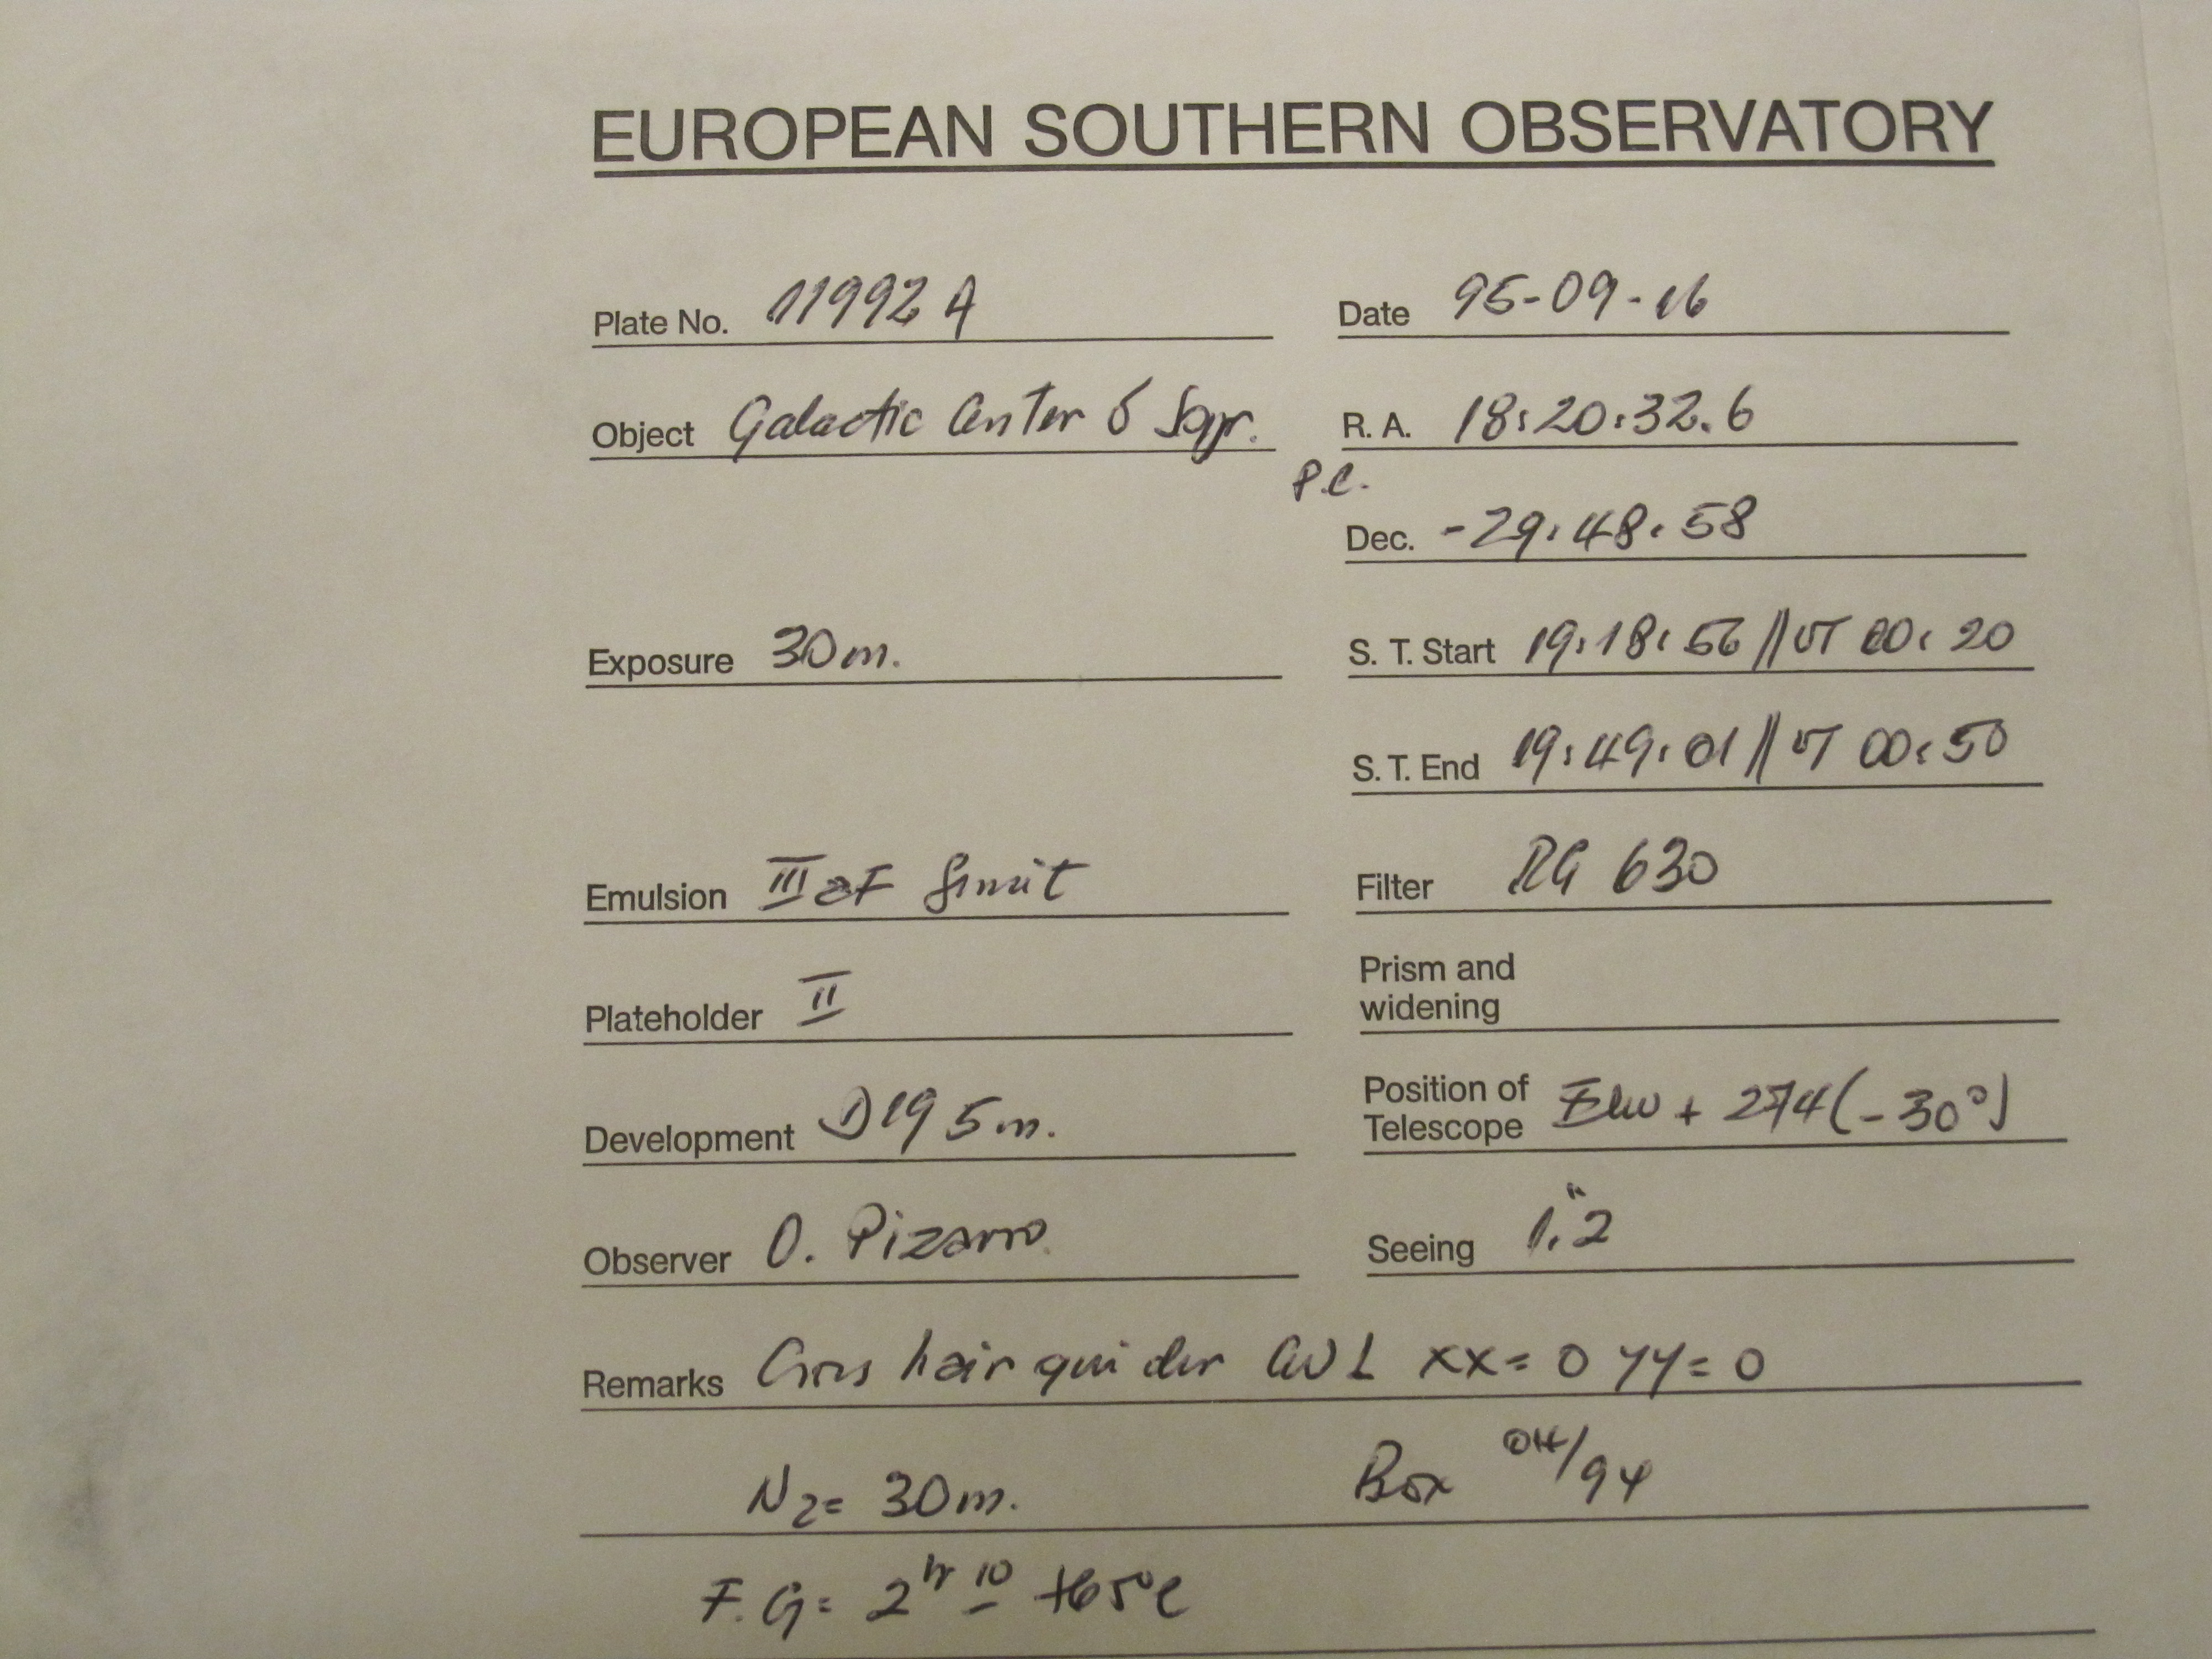 EUROPEAN SOUTHERN OBSERVATORY
Plate No. 11992 A Date 95-09-16
Object Galactic Center δ Sgr. R. A. 18:20:32.6
P.C.
Dec. -29:48:58
Exposure 30m. S. T. Start 19:18:56 // UT 00:20
S. T. End 19:49:01 // UT 00:50
Emulsion III aF Filter RG 630
Plateholder II Prism and widening
Development D19 5m. Position of Telescope + 274 (-30°)
Observer O. Pizarro Seeing 1."2
Remarks Cros hair guider xx= 0 yy= 0
N2= 30m. Box /94
F.G= 2hr 10 +65°C